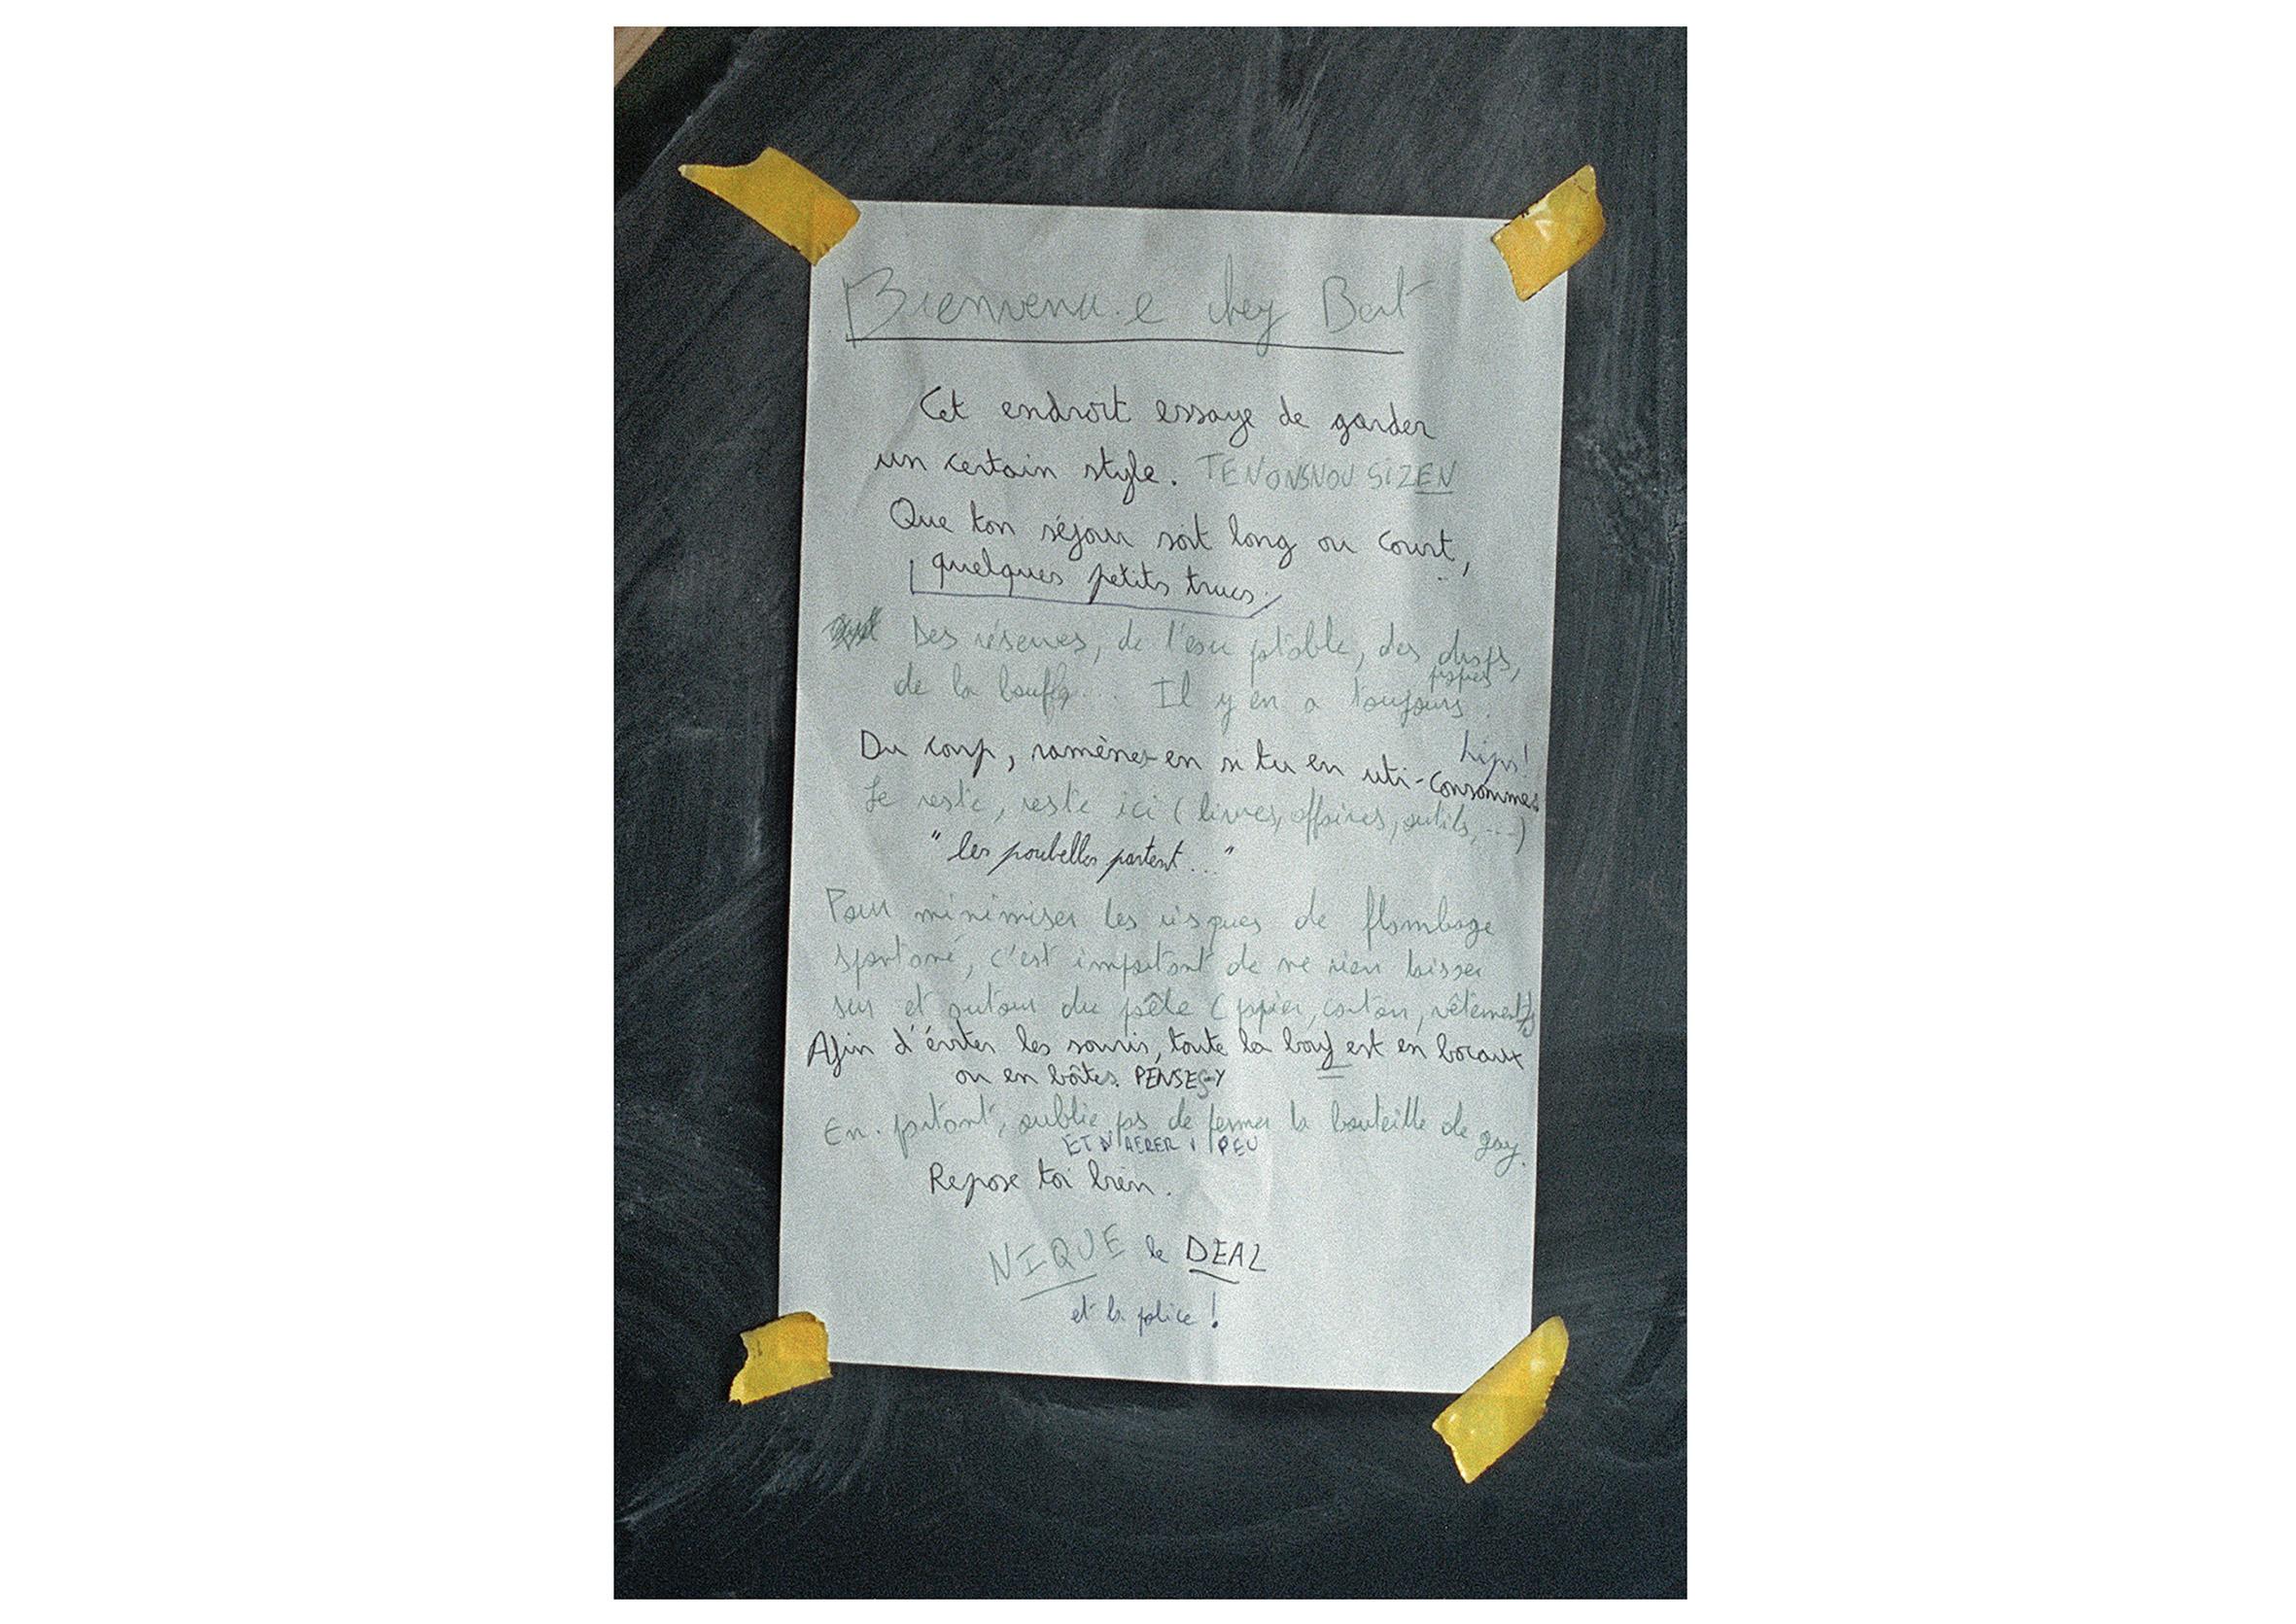 Bienvenu.e chez Bart
Cet endroit essaye de garder
un certain style. TENONSNOUSIZEN
Que ton séjour soit long ou court,
quelques petits trucs.
Des réserves, de l'eau potable, des draps,
propres
de la bouffe... Il y en a toujours.
hips!
Du coup, ramènes-en si tu en uti-consommes
Le reste, reste ici (livres, affaires, outils, ...)
"les poubelles partent..."
Pour minimiser les risques de flambage
spontané, c'est important de ne rien laisser
sur et autour du poêle (papier, carton, vêtements)
Afin d'éviter les souris, toute la bouf est en bocaux
ou en boîtes. PENSES-Y
En partant, oublie pas de fermer la bouteille de gaz.
ET D'AERER 1 PEU
Repose toi bien.
NIQUE le DEAL
et la police !